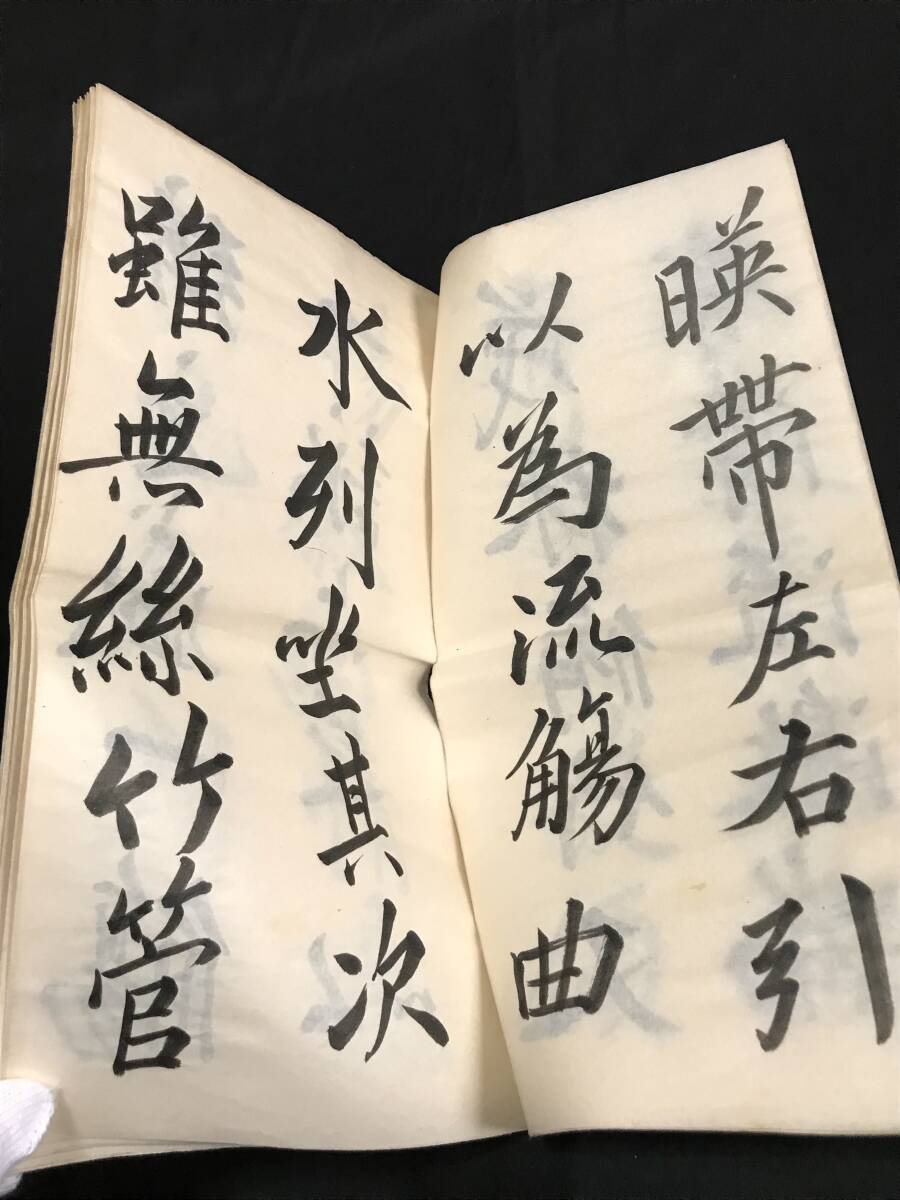 暎帶左右引
以為流觴曲
水列坐其次
雖無絲竹管